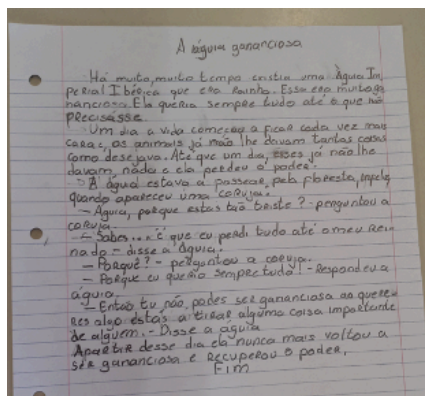 A águia gananciosa
Há muito, muito tempo existia uma Águia Im
perial Ibérica que era Rainha. Essa era muito ga
nanciosa. Ela queria sempre tudo até o que não
precisásse.
Um dia a vida começou a ficar cada vez mais
cara, os animais já não lhe davam tantas coisas
como desejava. Até que um dia, esses já não lhe
davam nada e ela perdeu o poder.
A águia estava a passear, pela floresta,
quando apareceu uma coruja.
- Águia, porque estas tão triste? - perguntou a
coruja.
- Sabes... é que eu perdi tudo até o meu Rei
nado - disse a águia.
- Porquê? - perguntou a coruja.
- Porque eu queria sempre tudo! - Respondeu a
águia.
- Então tu não, podes ser gananciosa ao quere
res algo estás a tirar alguma coisa importante
de alguém. - Disse a águia
Apartir desse dia ela nunca mais voltou a
ser gananciosa e recuperou o poder.
Fim